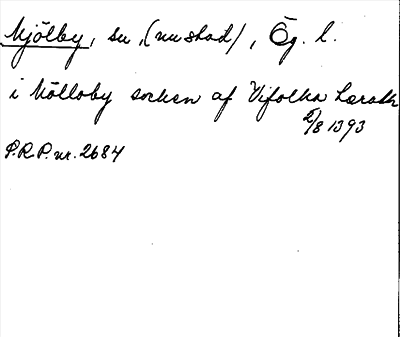 Mjölby, sn, (nu stad), Ög. l.
i Mölloby socken af Vifolka hæradh
2/8 1393
P.R.P. nr. 2684